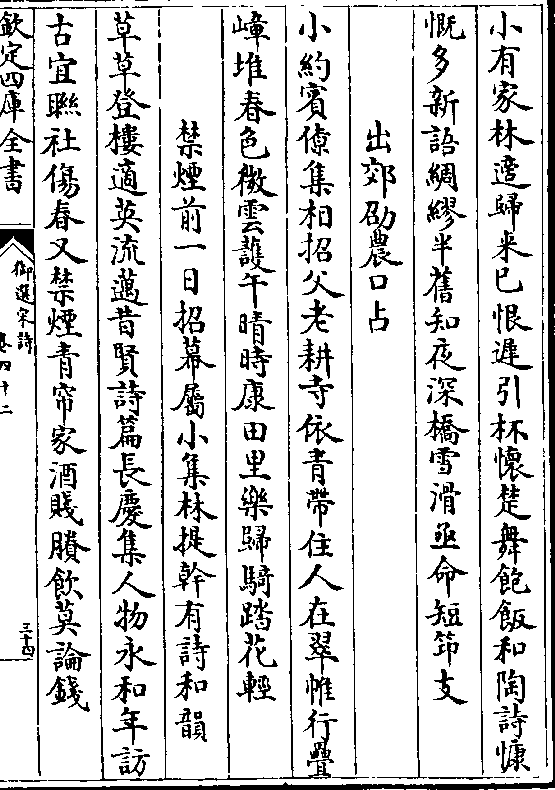 小有家林適歸来已恨遲引杯懷楚舞飽飯和陶詩慷
慨多新語綢繆半舊知夜深橋雪滑亟命短笻支
出郊劭農口占
小約賓僚集相招父老耕寺依青帶住人在翠帷行疊
嶂堆春色微雲護午晴時康田里樂歸騎踏花輕
禁煙前一日招幕屬小集林提幹有詩和韻
草草登樓適英流邁昔賢詩篇長慶集人物永和年訪
古宜聯社傷春又禁煙青帘家酒賤賸飲莫論錢
欽定四庫全書
御選宋詩
卷四十二
三十四